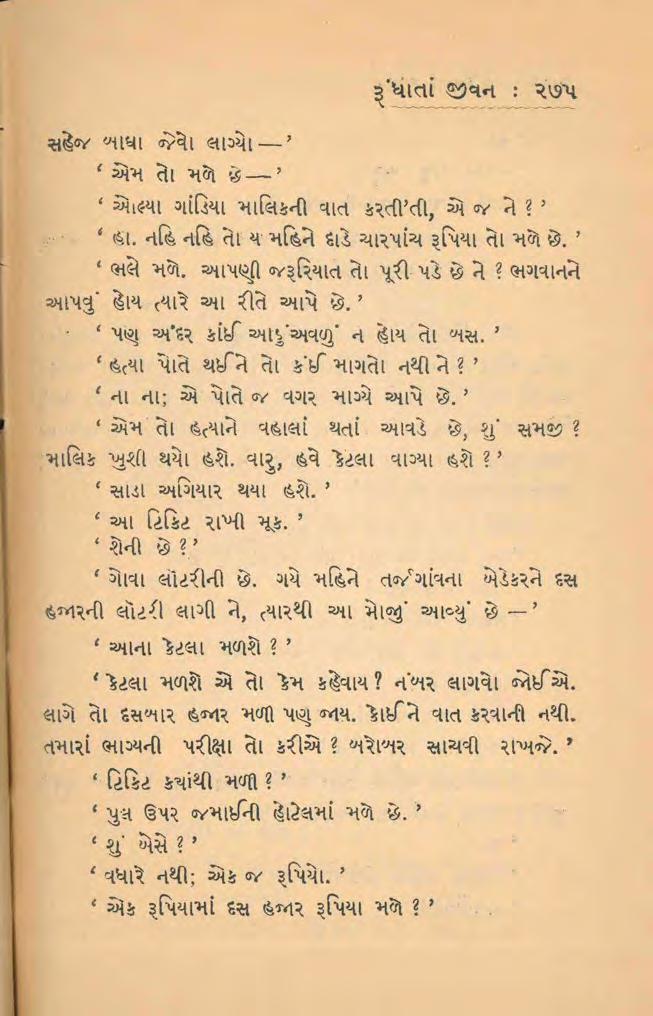 રૂંધાતાં જીવન : ૨૭૫
સહેજ બાઘા જેવો લાગ્યો —’
‘ એમ તો મળે છે —’
‘ ઓલ્યા ગાંડિયા માલિકની વાત કરતી’તી, એ જ ને ? ’
‘ હા. નહિ નહિ તો ય મહિને દાડે ચારપાંચ રૂપિયા તો મળે છે. ’
‘ ભલે મળે. આપણી જરૂરિયાત તો પૂરી પડે છે ને ? ભગવાનને
આપવું હોય ત્યારે આ રીતે આપે છે. ’
‘ પણ અંદર કાંઈ આડુંઅવળું ન હોય તો બસ. ’
‘ હત્યા પોતે થઈને તો કંઈ માગતો નથી ને ? ’
‘ ના ના; એ પોતે જ વગર માગ્યે આપે છે. ’
‘ એમ તો હત્યાને વહાલાં થતાં આવડે છે, શું સમજી ?
માલિક ખુશી થયો હશે. વારુ, હવે કેટલા વાગ્યા હશે ? ’
‘ સાડા અગિયાર થયા હશે. ’
‘ આ ટિકિટ રાખી મૂક. ’
‘ શેની છે ? ’
‘ ગોવા લૉટરીની છે. ગયે મહિને તર્જગાંવના ખેડેકરને દસ
હજારની લૉટરી લાગી ને, ત્યારથી આ મોજું આવ્યું છે —’
‘ આના કેટલા મળશે ? ’
‘ કેટલા મળશે એ તો કેમ કહેવાય ? નંબર લાગવો જોઈએ.
લાગે તો દસબાર હજાર મળી પણ જાય. કોઈને વાત કરવાની નથી.
તમારાં ભાગ્યની પરીક્ષા તો કરીએ ? બરોબર સાચવી રાખજે. ’
‘ ટિકિટ ક્યાંથી મળી ? ’
‘ પુલ ઉપર જમાઈની હોટેલમાં મળે છે. ’
‘ શું બેસે ? ’
‘ વધારે નથી; એક જ રૂપિયો. ’
‘ એક રૂપિયામાં દસ હજાર રૂપિયા મળે ? ’